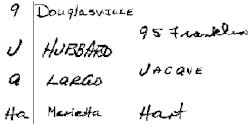 9 Douglasville
95 Franklin
J HUBBARD
JACQUE
a LARGO
Ha Marietta Hart